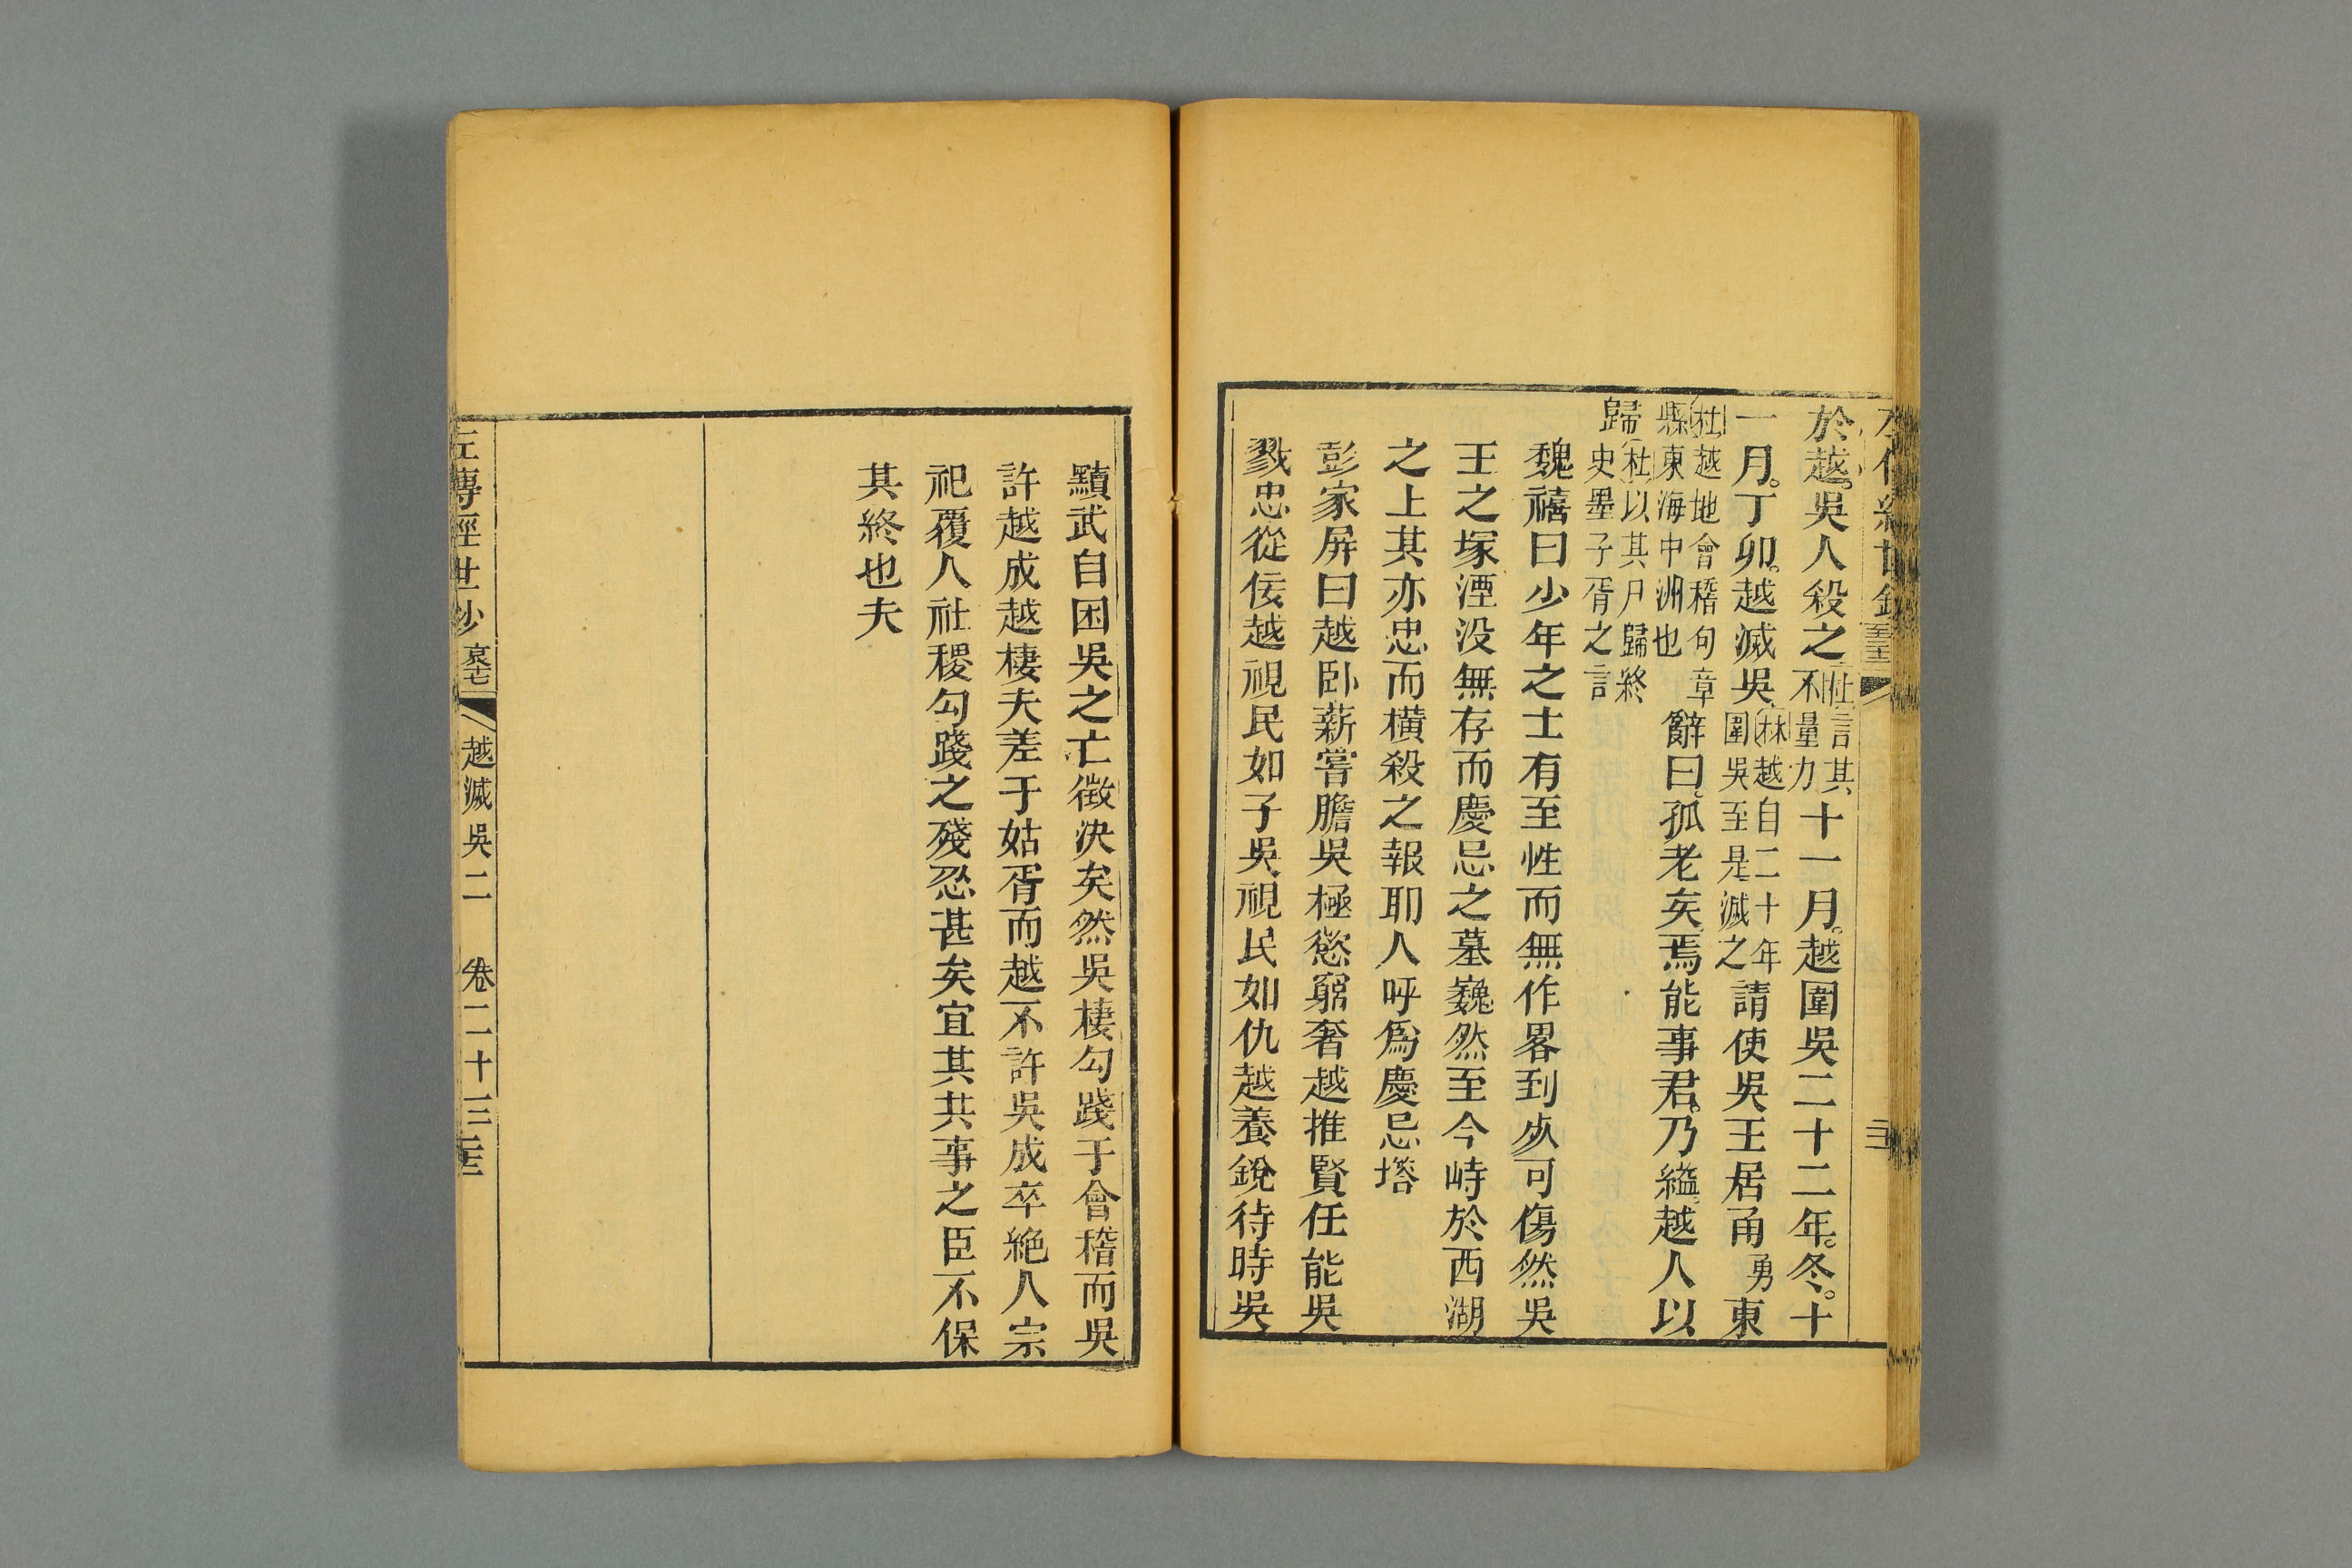 於越吳人殺之杜言其不量力十一月越圍吳二十二年冬十
一月丁卯越滅吳林越自二十年圍吳至是滅之請使吳王居甬勇東
杜越地會稽句章縣東海中洲也辭曰孤老矣焉能事君乃縊越人以
歸杜以其尸歸終史墨子胥之言
魏禧曰少年之士有至性而無作畧到処可傷然吳
王之塚湮没無存而慶忌之墓巍然至今峙於西湖
之上其亦忠而橫殺之報耶人呼爲慶忌塔
彭家屏曰越卧薪嘗膽吳極慾窮奢越推賢任能吳
戮忠從佞越視民如子吳視民如仇越養銳待時吳
黷武自困吳之亡徵決矣然吳棲勾踐于會稽而吳
許越成越棲夫差于姑胥而越不許吳成卒絶人宗
祀覆人社稷勾踐之殘忍甚矣宜其共事之臣不保
其終也夫
左傳經世鈔 哀七 越滅吳二 卷二十三